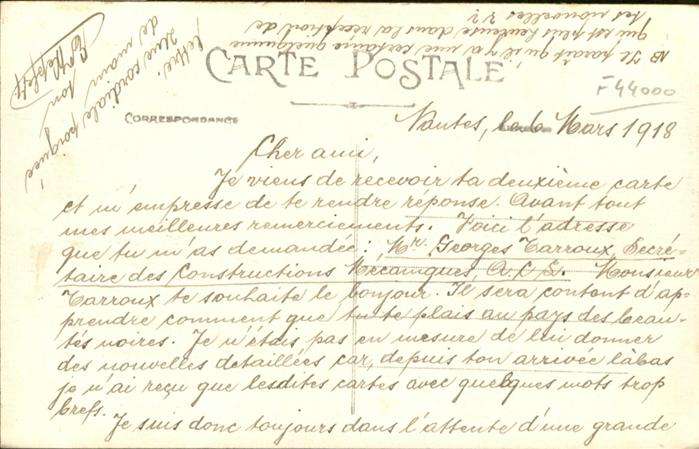 CARTE POSTALE
F44000
CORRESPONDANCE
Nantes, le 6 Mars 1918
Cher ami,
Je viens de recevoir ta deuxième carte
et m'empresse de te rendre réponse. Avant tout
mes meilleures remerciements. Voici l'adresse
que tu m'as demandée: Mr. Georges Tarroux, Secré-
taire des Constructions Mécaniques, A. C. L. Monsieur
Tarroux te souhaite le bonjour. Il sera content d'ap-
prendre comment que tu te plais au pays des beau-
tés noires. Je n'étais pas en mesure de lui donner
des nouvelles detaillées car, depuis ton arrivée làbas
je n'ai reçu que lesdites cartes avec quelques mots trop
brefs.
Je suis donc toujours dans l'attente d'une grande
lettre.
Une cordiale poignée
de main
ton
NB Il parait qu'il y a une certaine quelqu'une
qui est peu heureuse dans la réception de
tes nouvelles ??